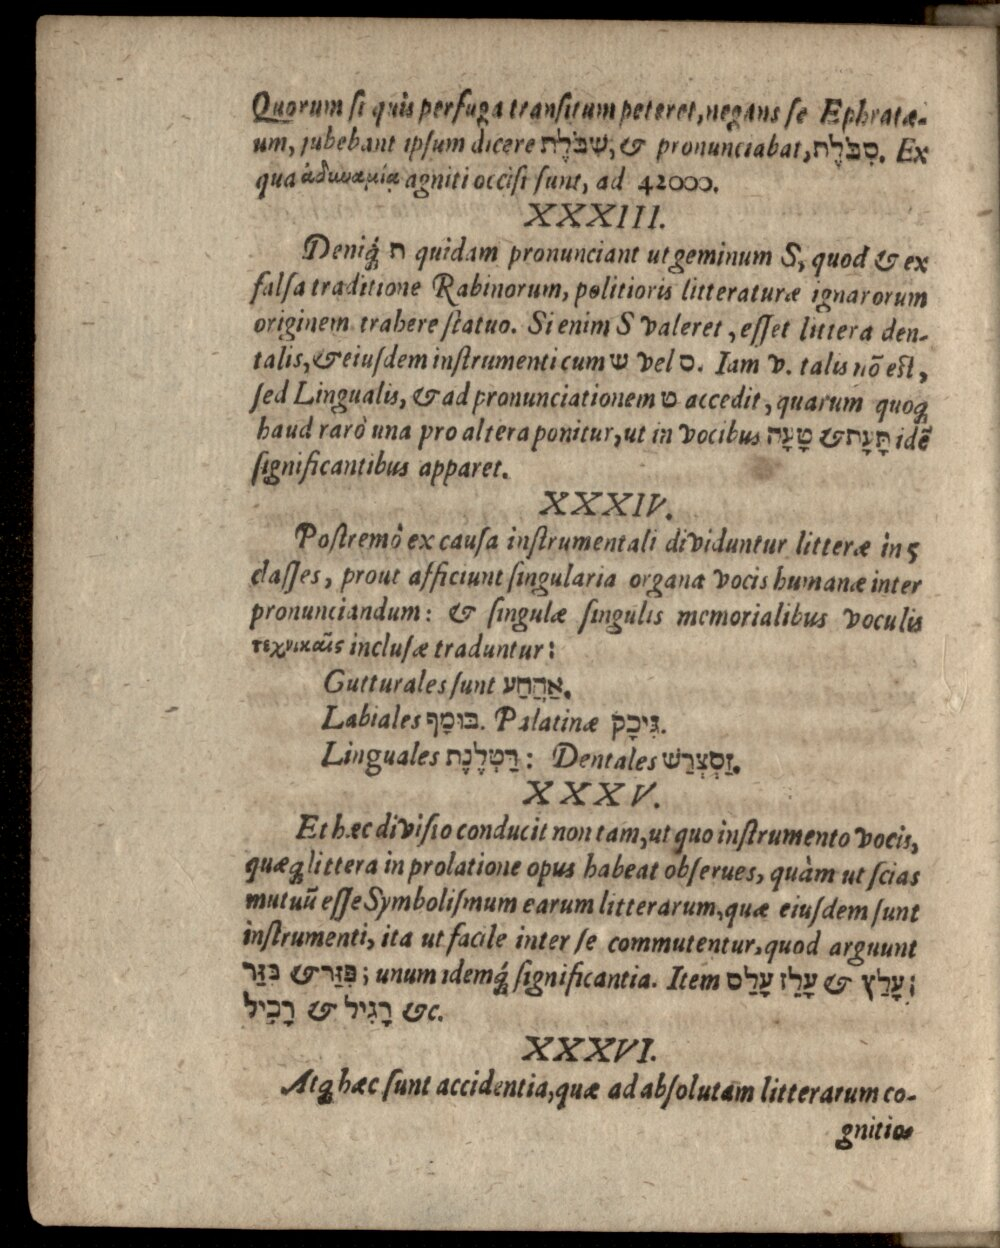 Quorum ſi quis perfuga tranſitum peteret, negans ſe Ephratæ-
um, jubebant ipſum dicere שִׁבֹּלֶת, & pronunciabat, סִבֹּלֶת. Ex
qua ἀδυναμίᾳ agniti occiſi ſunt, ad 42000.
XXXIII.
Deniq́ꝫ ת quidam pronunciant ut geminum S, quod & ex
falſa traditione Rabinorum, politioris litteraturæ ignarorum
originem trahere ſtatuo. Si enim S valeret, eſſet littera den-
talis, & eiuſdem inſtrumenti cum ש vel ס. Iam v. talis nō eſt,
ſed Lingualis, & ad pronunciationem ט accedit, quarum quoqꝫ
haud rarò una pro altera ponitur, ut in vocibus תָּעָה & טָעָה idē
ſignificantibus apparet.
XXXIV.
Poſtremò ex cauſa inſtrumentali dividuntur litteræ in 5
claſſes, prout afficiunt ſingularia organa vocis humanæ inter
pronunciandum: & ſingulæ ſingulis memorialibus voculis
τεχνικαῖς incluſæ traduntur:
Gutturales ſunt אַהֲחַע.
Labiales בּוּמָף. Palatinæ גִּיכָק.
Linguales דַּטְלֶנָת: Dentales זַסְצְרַשׁ.
XXXV.
Et hæc diviſio conducit non tam, ut quo inſtrumento vocis,
quæqꝫ littera in prolatione opus habeat obſerues, quàm ut ſcias
mutuū eſſe Symboliſmum earum litterarum, quæ eiuſdem ſunt
inſtrumenti, ita ut facile inter ſe commutentur, quod arguunt
בִּזַּר & פִּזַּר; unum idemq́ꝫ ſignificantia. Item עָלַס עָלַז & עָלַץ;
רָכִיל & רָגִיל &c.
XXXVI.
Atqꝫ hæc ſunt accidentia, quæ ad abſolutam litterarum co-
gnitio-